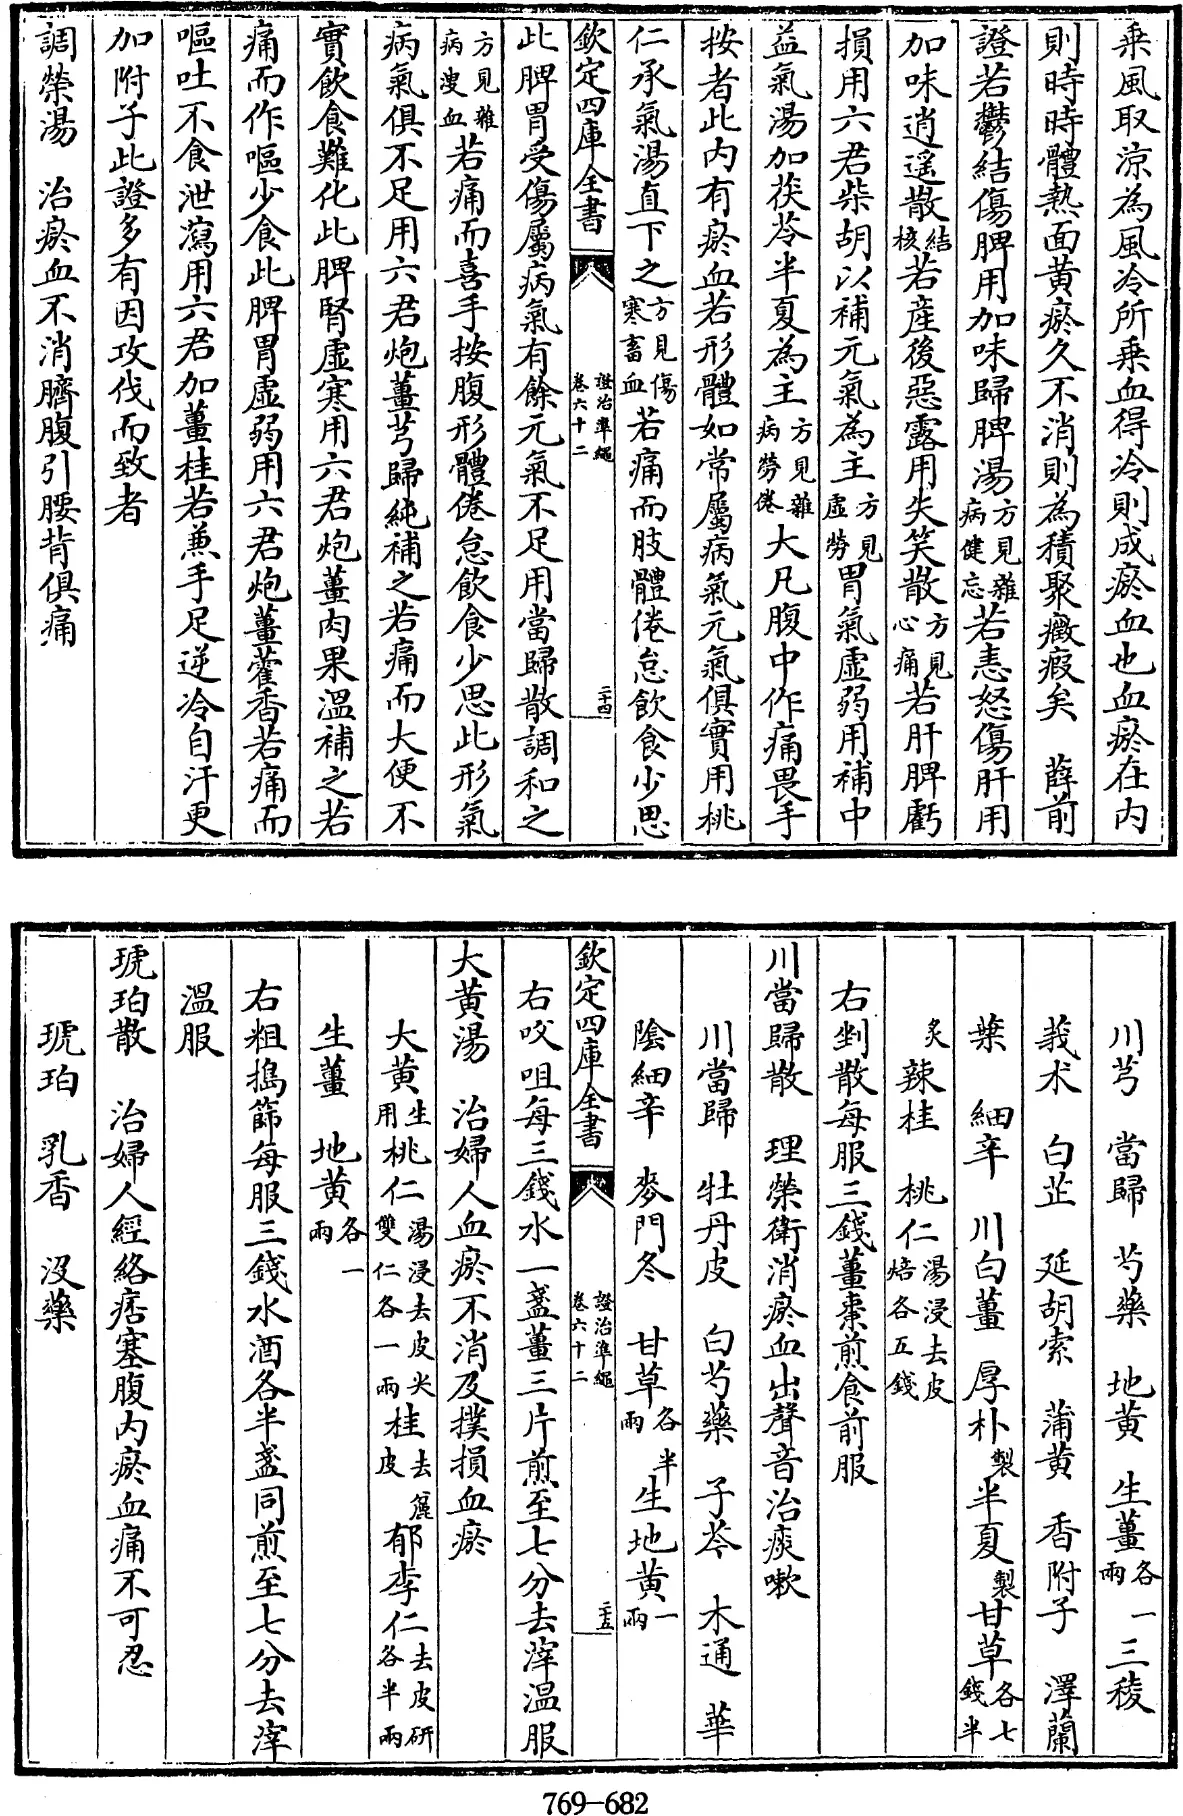 乗風取涼為風冷所乗血得冷則成瘀血也血瘀在内
則時時體熱面黄瘀久不消則為積聚癥瘕矣　薛前
證若鬱結傷脾用加味歸脾湯方見雜病健忘若恚怒傷肝用
加味逍遥散結核若産後惡露用失笑散方見心痛若肝脾虧
損用六君柴胡以補元氣為主方見虚勞胃氣虚弱用補中
益氣湯加茯苓半夏為主方見雜病勞倦大凡腹中作痛畏手
按者此内有瘀血若形體如常屬病氣元氣俱實用桃
仁承氣湯直下之方見傷寒畜血若痛而肢體倦怠飲食少思
欽定四庫全書　證治準繩卷六十二　二十四
此脾胃受傷屬病氣有餘元氣不足用當歸散調和之
方見雜病溲血若痛而喜手按腹形體倦怠飲食少思此形氣
病氣俱不足用六君炮薑芎歸純補之若痛而大便不
實飲食難化此脾腎虚寒用六君炮薑肉果溫補之若
痛而作嘔少食此脾胃虚弱用六君炮薑藿香若痛而
嘔吐不食泄瀉用六君加薑桂若兼手足逆冷自汗更
加附子此證多有因攻伐而致者
調榮湯　治瘀血不消臍腹引腰背俱痛
川芎　當歸　芍藥　地黄　生薑各一兩　三稜
莪术　白芷　延胡索　蒲黄　香附子　澤蘭
葉　細辛　川白薑　厚朴製　半夏製　甘草各七錢半
炙　辣桂　桃仁湯浸去皮焙各五錢
右剉散每服三錢薑棗煎食前服
川當歸散　理榮衛消瘀血出聲音治痰嗽
川當歸　牡丹皮　白芍藥　子芩　木通　華
陰細辛　麥門冬　甘草各半兩　生地黄一兩
欽定四庫全書　證治準繩卷六十二　二十五
右㕮咀每三錢水一盞薑三片煎至七分去滓溫服
大黄湯　治婦人血瘀不消及撲損血瘀
大黄生用　桃仁湯浸去皮尖雙仁各一兩　桂去麤皮　郁李仁去皮研各半兩
生薑　地黄各一兩
右粗搗篩每服三錢水酒各半盞同煎至七分去滓
溫服
琥珀散　治婦人經絡痞塞腹内瘀血痛不可忍
琥珀　乳香　没藥
769-682